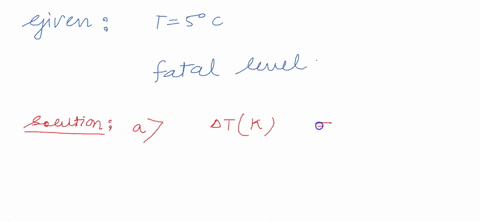 given: T = 5° C
fatal level.
solution: a) ΔT(K)